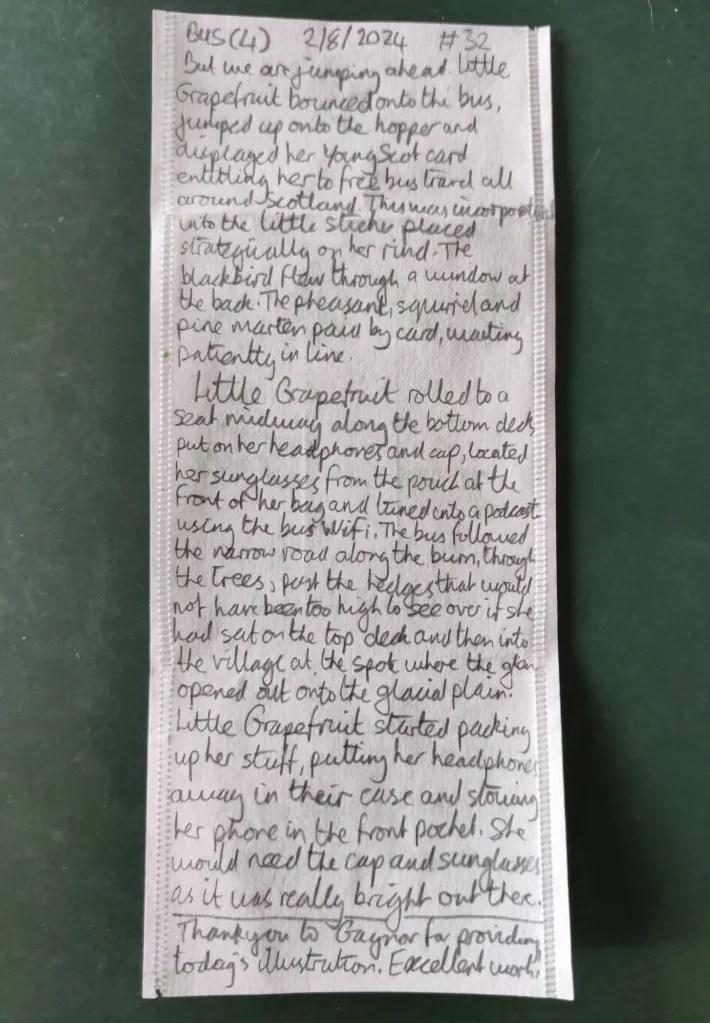 BUS(4) 2/8/2024 #32
But we are jumping ahead. Little
Grapefruit bounced onto the bus,
jumped up onto the hopper and
displayed her Young Scot card
entitling her to free bus travel all
around Scotland. This was incorporated
into the little sticker placed
strategically on her rind. The
blackbird flew through a window at
the back. The pheasant, squirrel and
pine marten paid by card, waiting
patiently in line.
Little Grapefruit rolled to a
seat midway along the bottom deck,
put on her headphones and cap, located
her sunglasses from the pouch at the
front of her bag and tuned into a podcast
using the bus Wifi. The bus followed
the narrow road along the burn, through
the trees, past the hedges that would
not have been too high to see over if she
had sat on the top deck and then into
the village at the spot where the glen
opened out onto the glacial plain.
Little Grapefruit started packing
up her stuff, putting her headphones
away in their case and stowing
her phone in the front pocket. She
would need the cap and sunglasses
as it was really bright out there.
Thankyou to Gaynor for providing
today's illustration. Excellent work.